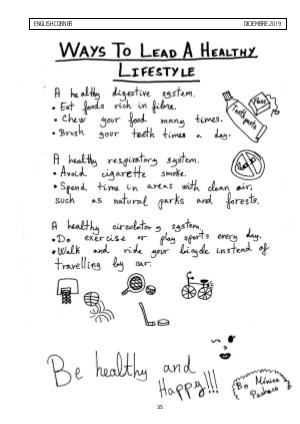 ENGLISH CORNER
DICIEMBRE 2019
WAYS TO LEAD A HEALTHY
LIFESTYLE
A healthy digestive system.
• Eat foods rich in fibre.
• Chew your food many times.
• Brush your teeth times a day.
Floss
Toothpaste
A healthy respiratory system.
• Avoid cigarette smoke.
• Spend time in areas with clean air,
such as natural parks and forests.
A healthy circulatory system.
• Do exercise or play sports every day.
• Walk and ride your bicycle instead of
travelling by car.
Be healthy and
Happy!!!
By Mónica
Pacheco
35